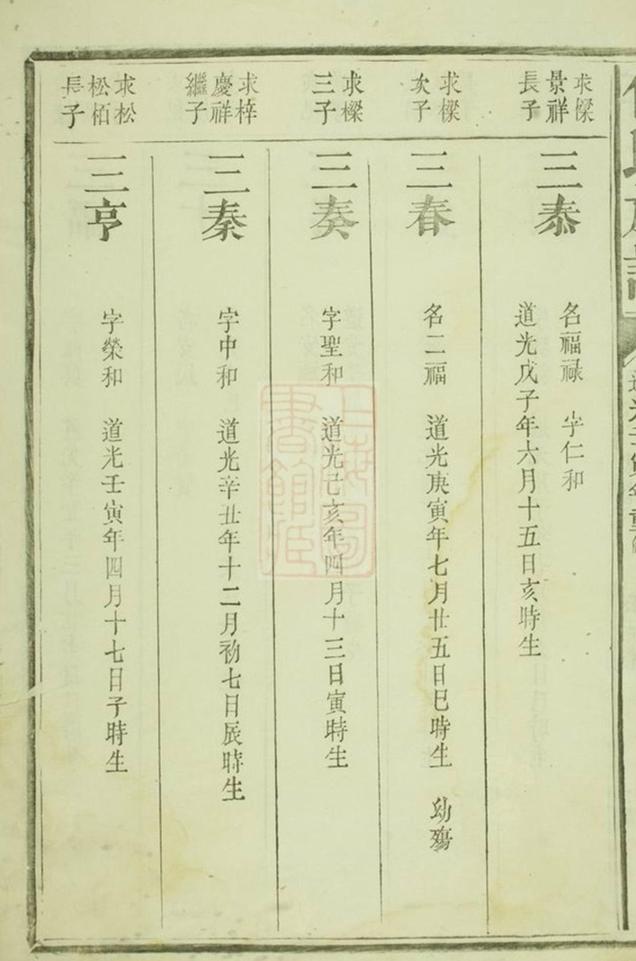 求樑
景祥
長子
三泰
名福祿 字仁和
道光戊子年六月十五日亥時生
求樑
次子
三春
名二福 道光庚寅年七月廿五日巳時生 幼殤
求樑
三子
三奏
字聖和 道光己亥年四月十三日寅時生
求梓
慶祥
繼子
三秦
字中和 道光辛丑年十二月初七日辰時生
求松
松栢
長子
三亨
字榮和 道光壬寅年四月十七日子時生
上海圖書館藏